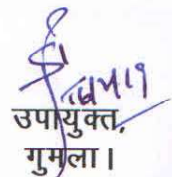 उपायुक्त,
गुमला।